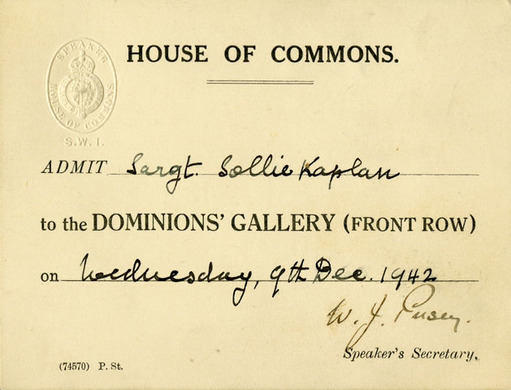 HOUSE OF COMMONS.
SPEAKER
HOUSE OF COMMONS
S.W.1.
ADMIT Sargt. Sollie Kaplan
to the DOMINIONS' GALLERY (FRONT ROW)
on Wednesday, 9th Dec. 1942
W. J. Pusey.
Speaker's Secretary.
(74570) P. St.